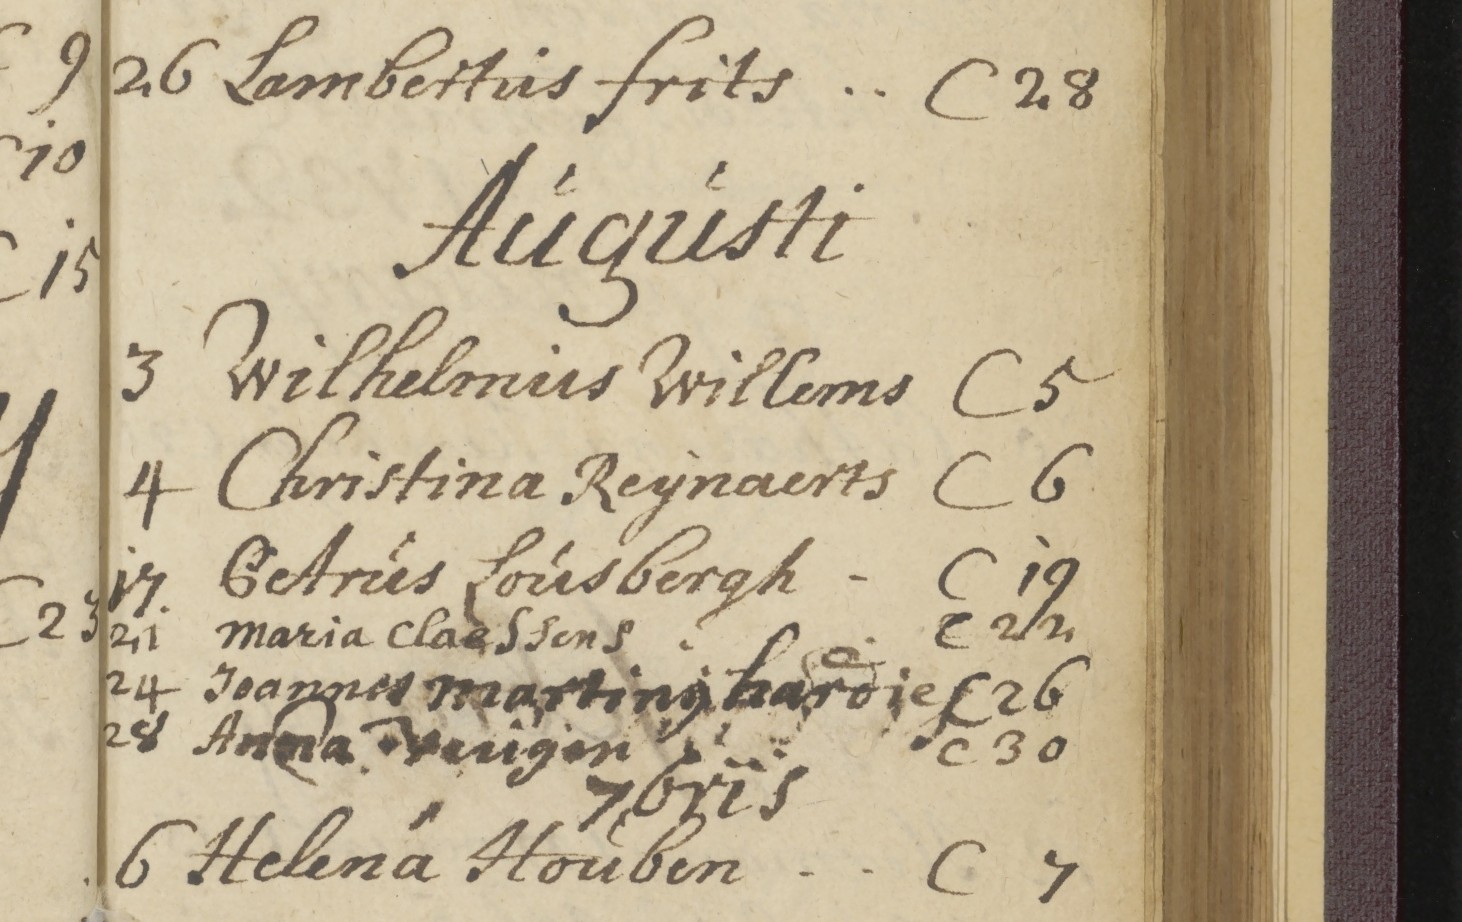 9
C 10
C 15
C 23
26 Lambertus frits .. C 28
Augusti
3 Wilhelmus Willems C 5
4 Christina Reynaerts C 6
17 Petrus Lousbergh - C 19
21 maria claessens C 22
24 Joannes martinij C 26
28 Anna C 30
7bris
6 Helena Houben .. C 7